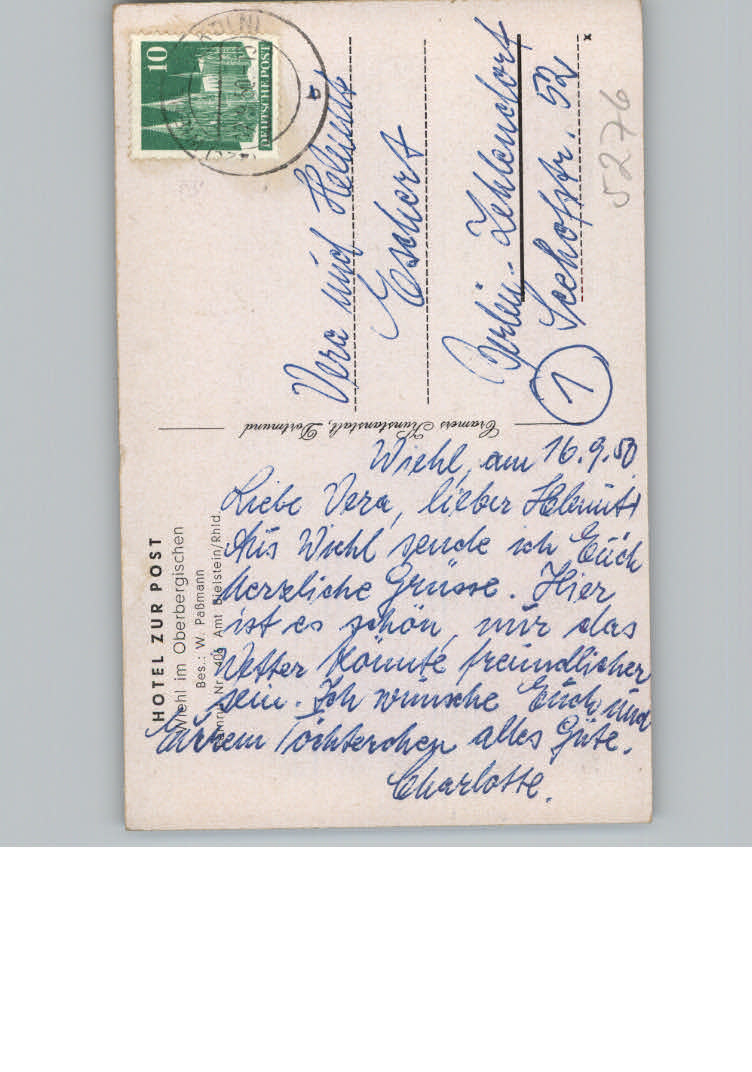 10
DEUTSCHE POST
Vera und Helmut
Eschert
Berlin-Zehlendorf
Seehofstr. 52
1
x
5276
Cramers Kunstanstalt, Dortmund
HOTEL ZUR POST
Wiehl im Oberbergischen
Bes.: W. Paßmann
Nr. 406 Amt Bielstein/Rhld.
Wiehl, am 16.9.50
Liebe Vera, lieber Helmut!
Aus Wiehl sende ich Euch
herzliche Grüsse. Hier
ist es schön, nur das
Wetter könnte freundlicher
sein. Ich wünsche Euch und
Eurem Töchterchen alles Gute.
Charlotte.